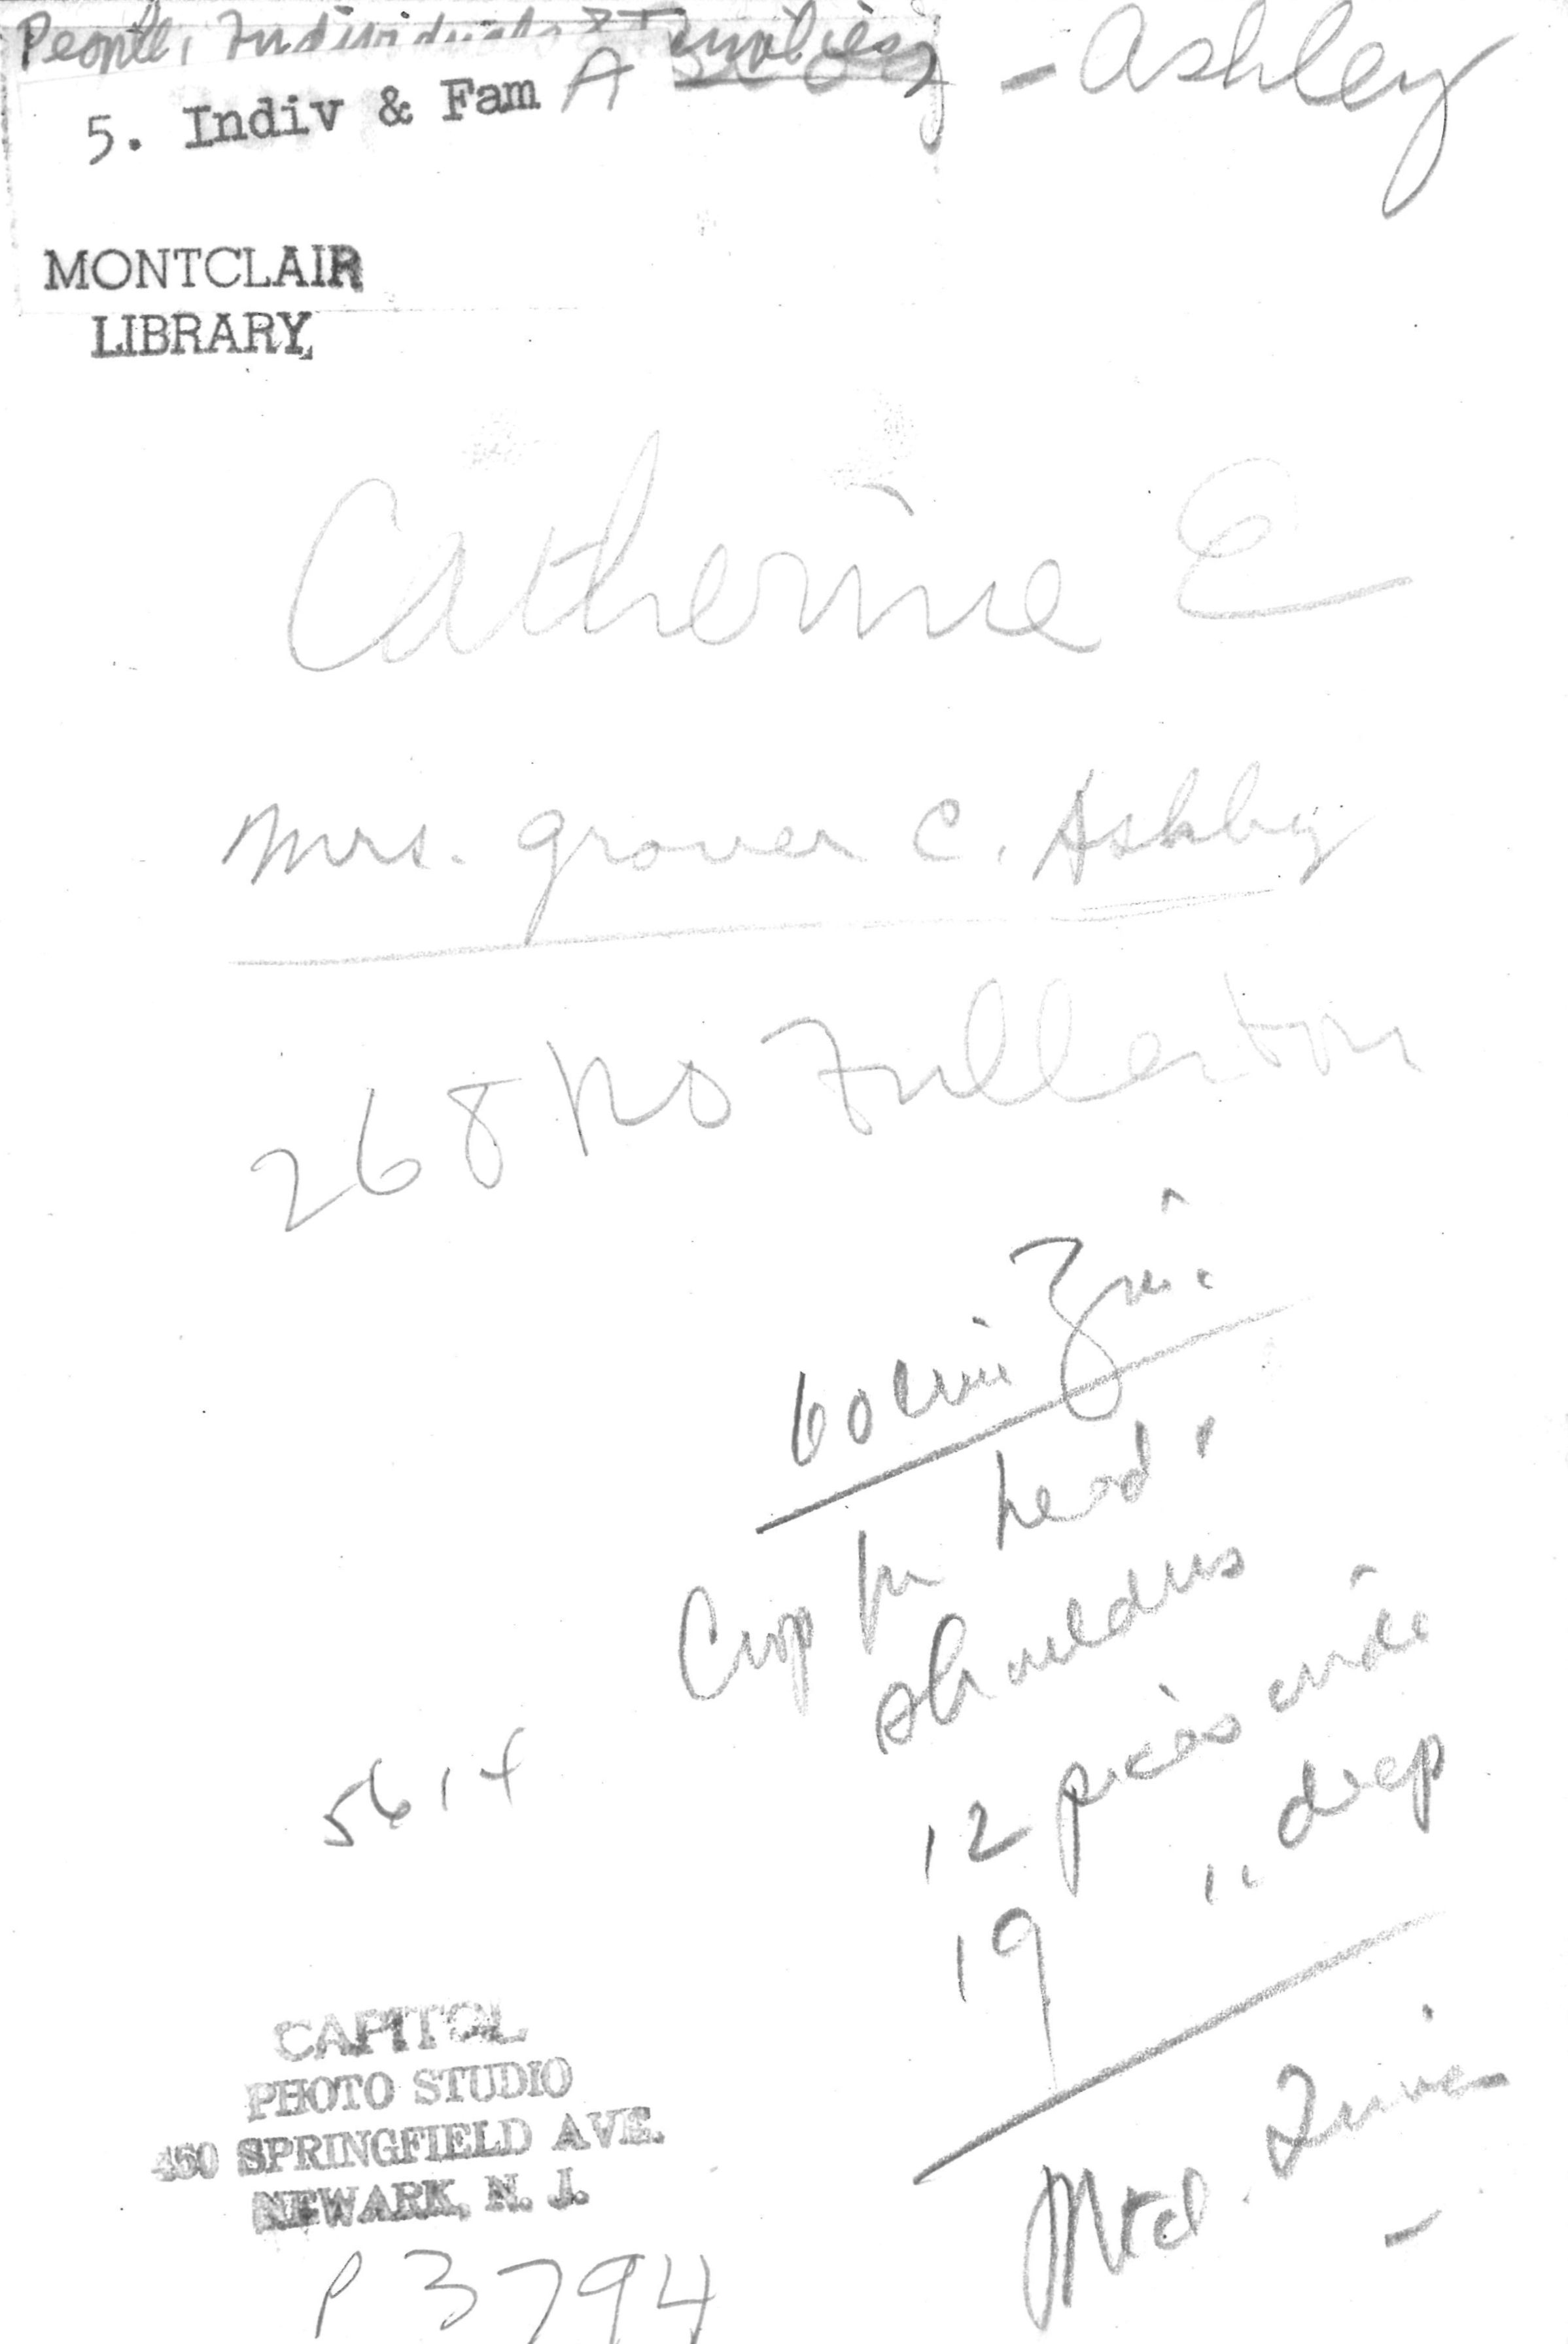 People, Individuals & Families - Ashley
5. Indiv & Fam A
MONTCLAIR
LIBRARY
Catherine E
Mrs. Grover C. Ashby
268 No Fullerton
60 line Zinc
Crop for head &
shoulders
12 picas wide
19 " deep
5614
Mtcl. Times
CAPITOL
PHOTO STUDIO
450 SPRINGFIELD AVE.
NEWARK, N. J.
P 3794